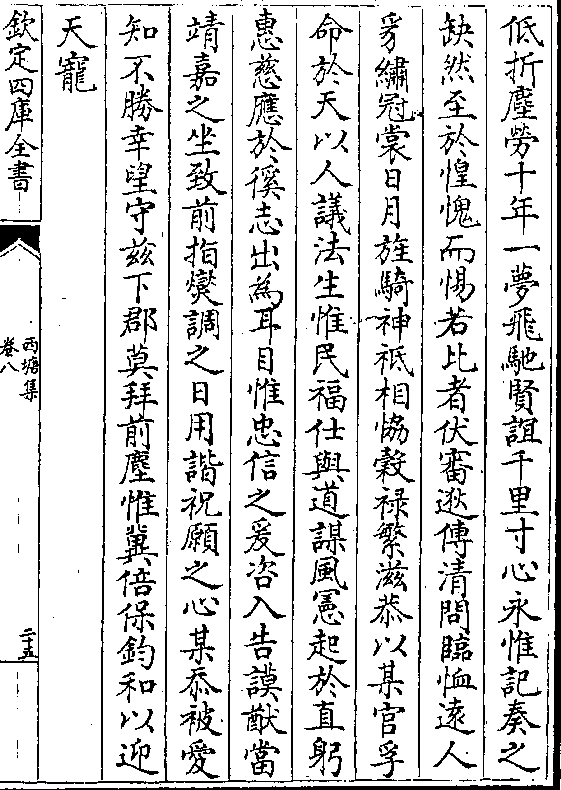 低折塵勞十年一夢飛馳賢誼千里寸心永惟記奏之
缺然至於惶愧而惕若比者伏審遨傳清問臨恤遠人
豸繡冠裳日月旌騎神祇相恊穀禄繁滋恭以某官孚
命於天以人議法生惟民福仕與道謀風憲起於直躬
惠慈應於徯志出為耳目惟忠信之爰咨入告謨猷當
靖嘉之坐致前指爕調之日用諧祝願之心某忝被愛
知不勝幸望守兹下郡莫拜前塵惟冀倍保鈞和以迎
天寵
欽定四庫全書
西塘集
卷八
二五